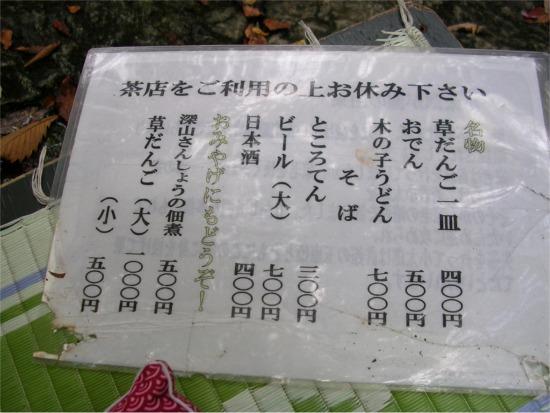 茶店をご利用の上お休み下さい
名物
草だんご一皿 四〇〇円
おでん 五〇〇円
木の子うどん 七〇〇円
そば
ところてん 三〇〇円
ビール（大） 七〇〇円
日本酒 四〇〇円
おみやげにもどうぞ！
深山さんしょうの佃煮 五〇〇円
草だんご（大） 一〇〇〇円
（小） 五〇〇円